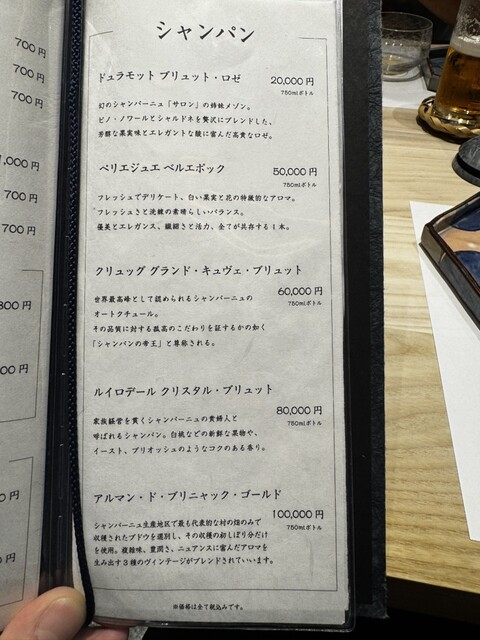 700 円
700 円
700 円
,000 円
700 円
700 円
800 円
00 円
0 円
円
シャンパン
ドュラモット ブリュット・ロゼ 20,000 円
750mlボトル
幻のシャンパーニュ「サロン」の姉妹メゾン。
ピノ・ノワールとシャルドネを贅沢にブレンドした、
芳醇な果実味とエレガントな酸に富んだ高貴なロゼ。
ペリエジュエ ベルエポック 50,000 円
750mlボトル
フレッシュでデリケート、白い果実と花の特徴的なアロマ。
フレッシュさと洗練の素晴らしいバランス。
優美とエレガンス、繊細さと活力、全てが共存する1本。
クリュッグ グランド・キュヴェ・ブリュット
60,000 円
750mlボトル
世界最高峰として認められるシャンパーニュの
オートクチュール。
その品質に対する孤高のこだわりを証するかの如く
「シャンパンの帝王」と尊称される。
ルイロデール クリスタル・ブリュット
80,000 円
750mlボトル
家族経営を貫くシャンパーニュの貴婦人と
呼ばれるシャンパン。白桃などの新鮮な果物や、
イースト、ブリオッシュのようなコクのある香り。
アルマン・ド・ブリニャック・ゴールド
100,000 円
750mlボトル
シャンパーニュ生産地区で最も代表的な村の畑のみで
収穫されたブドウを選別し、その収穫の初しぼり分だけ
を使用。複雑味、豊潤さ、ニュアンスに富んだアロマを
生み出す3種のヴィンテージがブレンドされています。
※価格は全て税込みです。